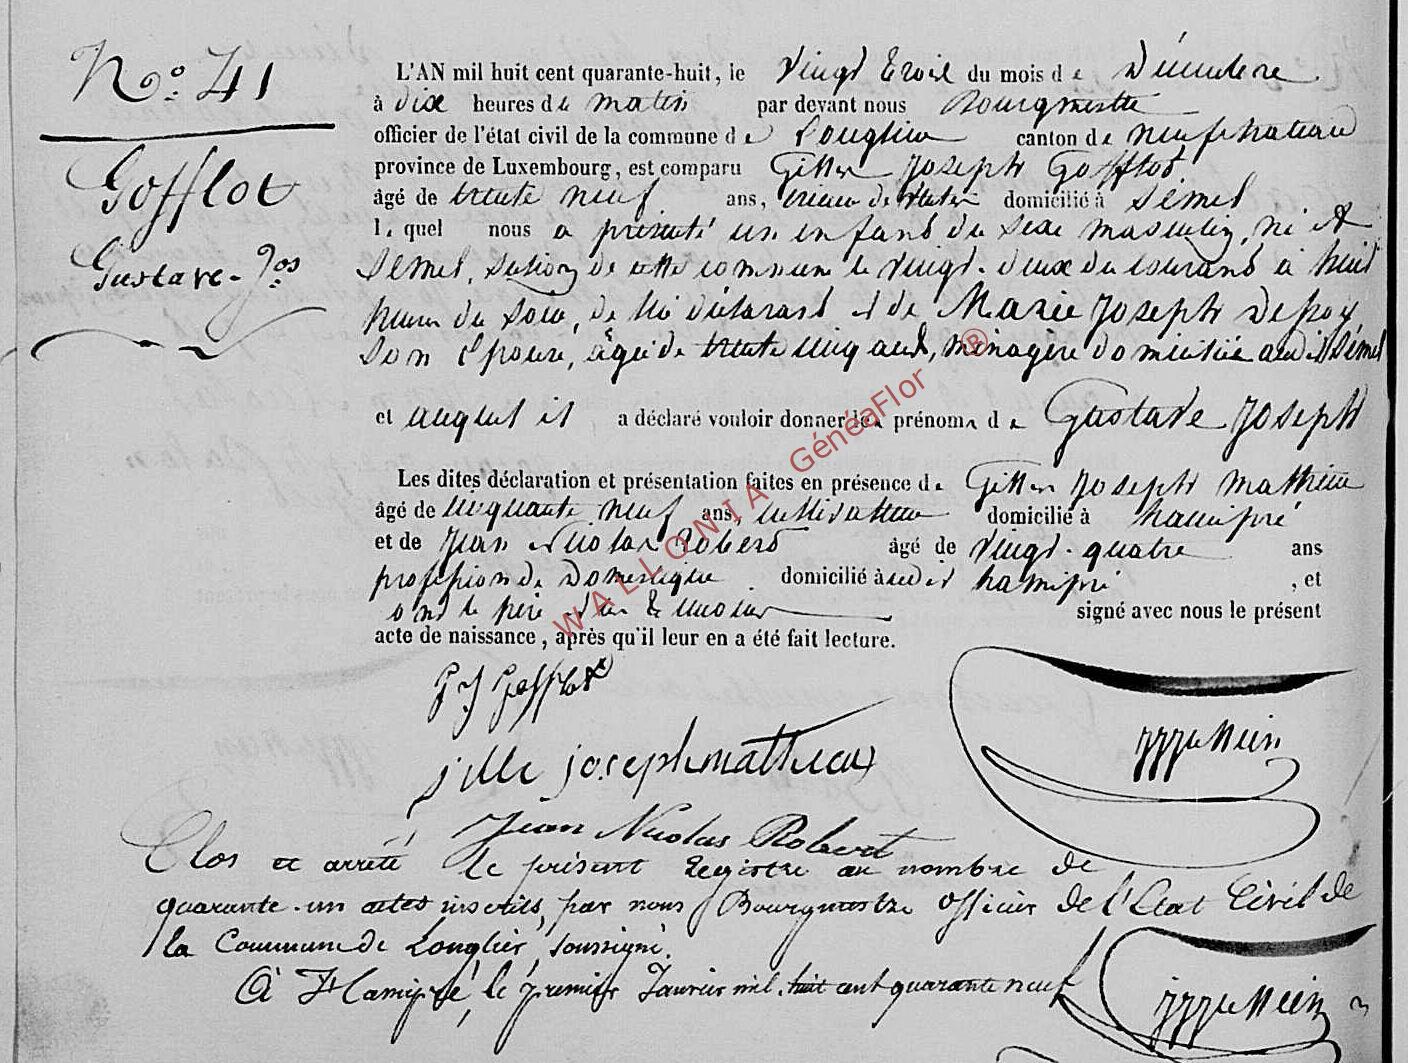 N.º 41
Gofflot
Gustave-Jos
L'AN mil huit cent quarante-huit, le vingt trois du mois de Décembre
à dix heures du matin par devant nous Bourgmestre
officier de l'état civil de la commune de Longlier canton de neufchateau
province de Luxembourg, est comparu Joseph Gofflot
âgé de trente neuf ans, domicilié à Sémel
lequel nous a présenté un enfant du sexe masculin, né à
Sémel, section de cette commune le vingt-deux du courant à huit
heures du soir, de lui déclarant et de Marie Joseph
son épouse, âgée de trente cinq ans, ménagère domiciliée audit Sémel
et auquel il a déclaré vouloir donner les prénoms de Gustave Joseph
Les dites déclaration et présentation faites en présence de Joseph Mathieu
âgé de cinquante neuf ans, cultivateur domicilié à hamipré
et de Jean Nicolas Robert âgé de vingt-quatre ans
profession de Domestique domicilié audit hamipré, et
ont le père et les témoins signé avec nous le présent
acte de naissance, après qu'il leur en a été fait lecture.
G J Gofflot
joseph mathieu
Jean Nicolas Robert
Clos et arrêté le présent Registre au nombre de
quarante-un actes inscrits, par nous Bourgmestre officier de l'Etat Civil de
la Commune de Longlier, soussigné.
A Hamipré, le premier Janvier mil huit cent quarante neuf
WALLONIA GénéaFlor ®